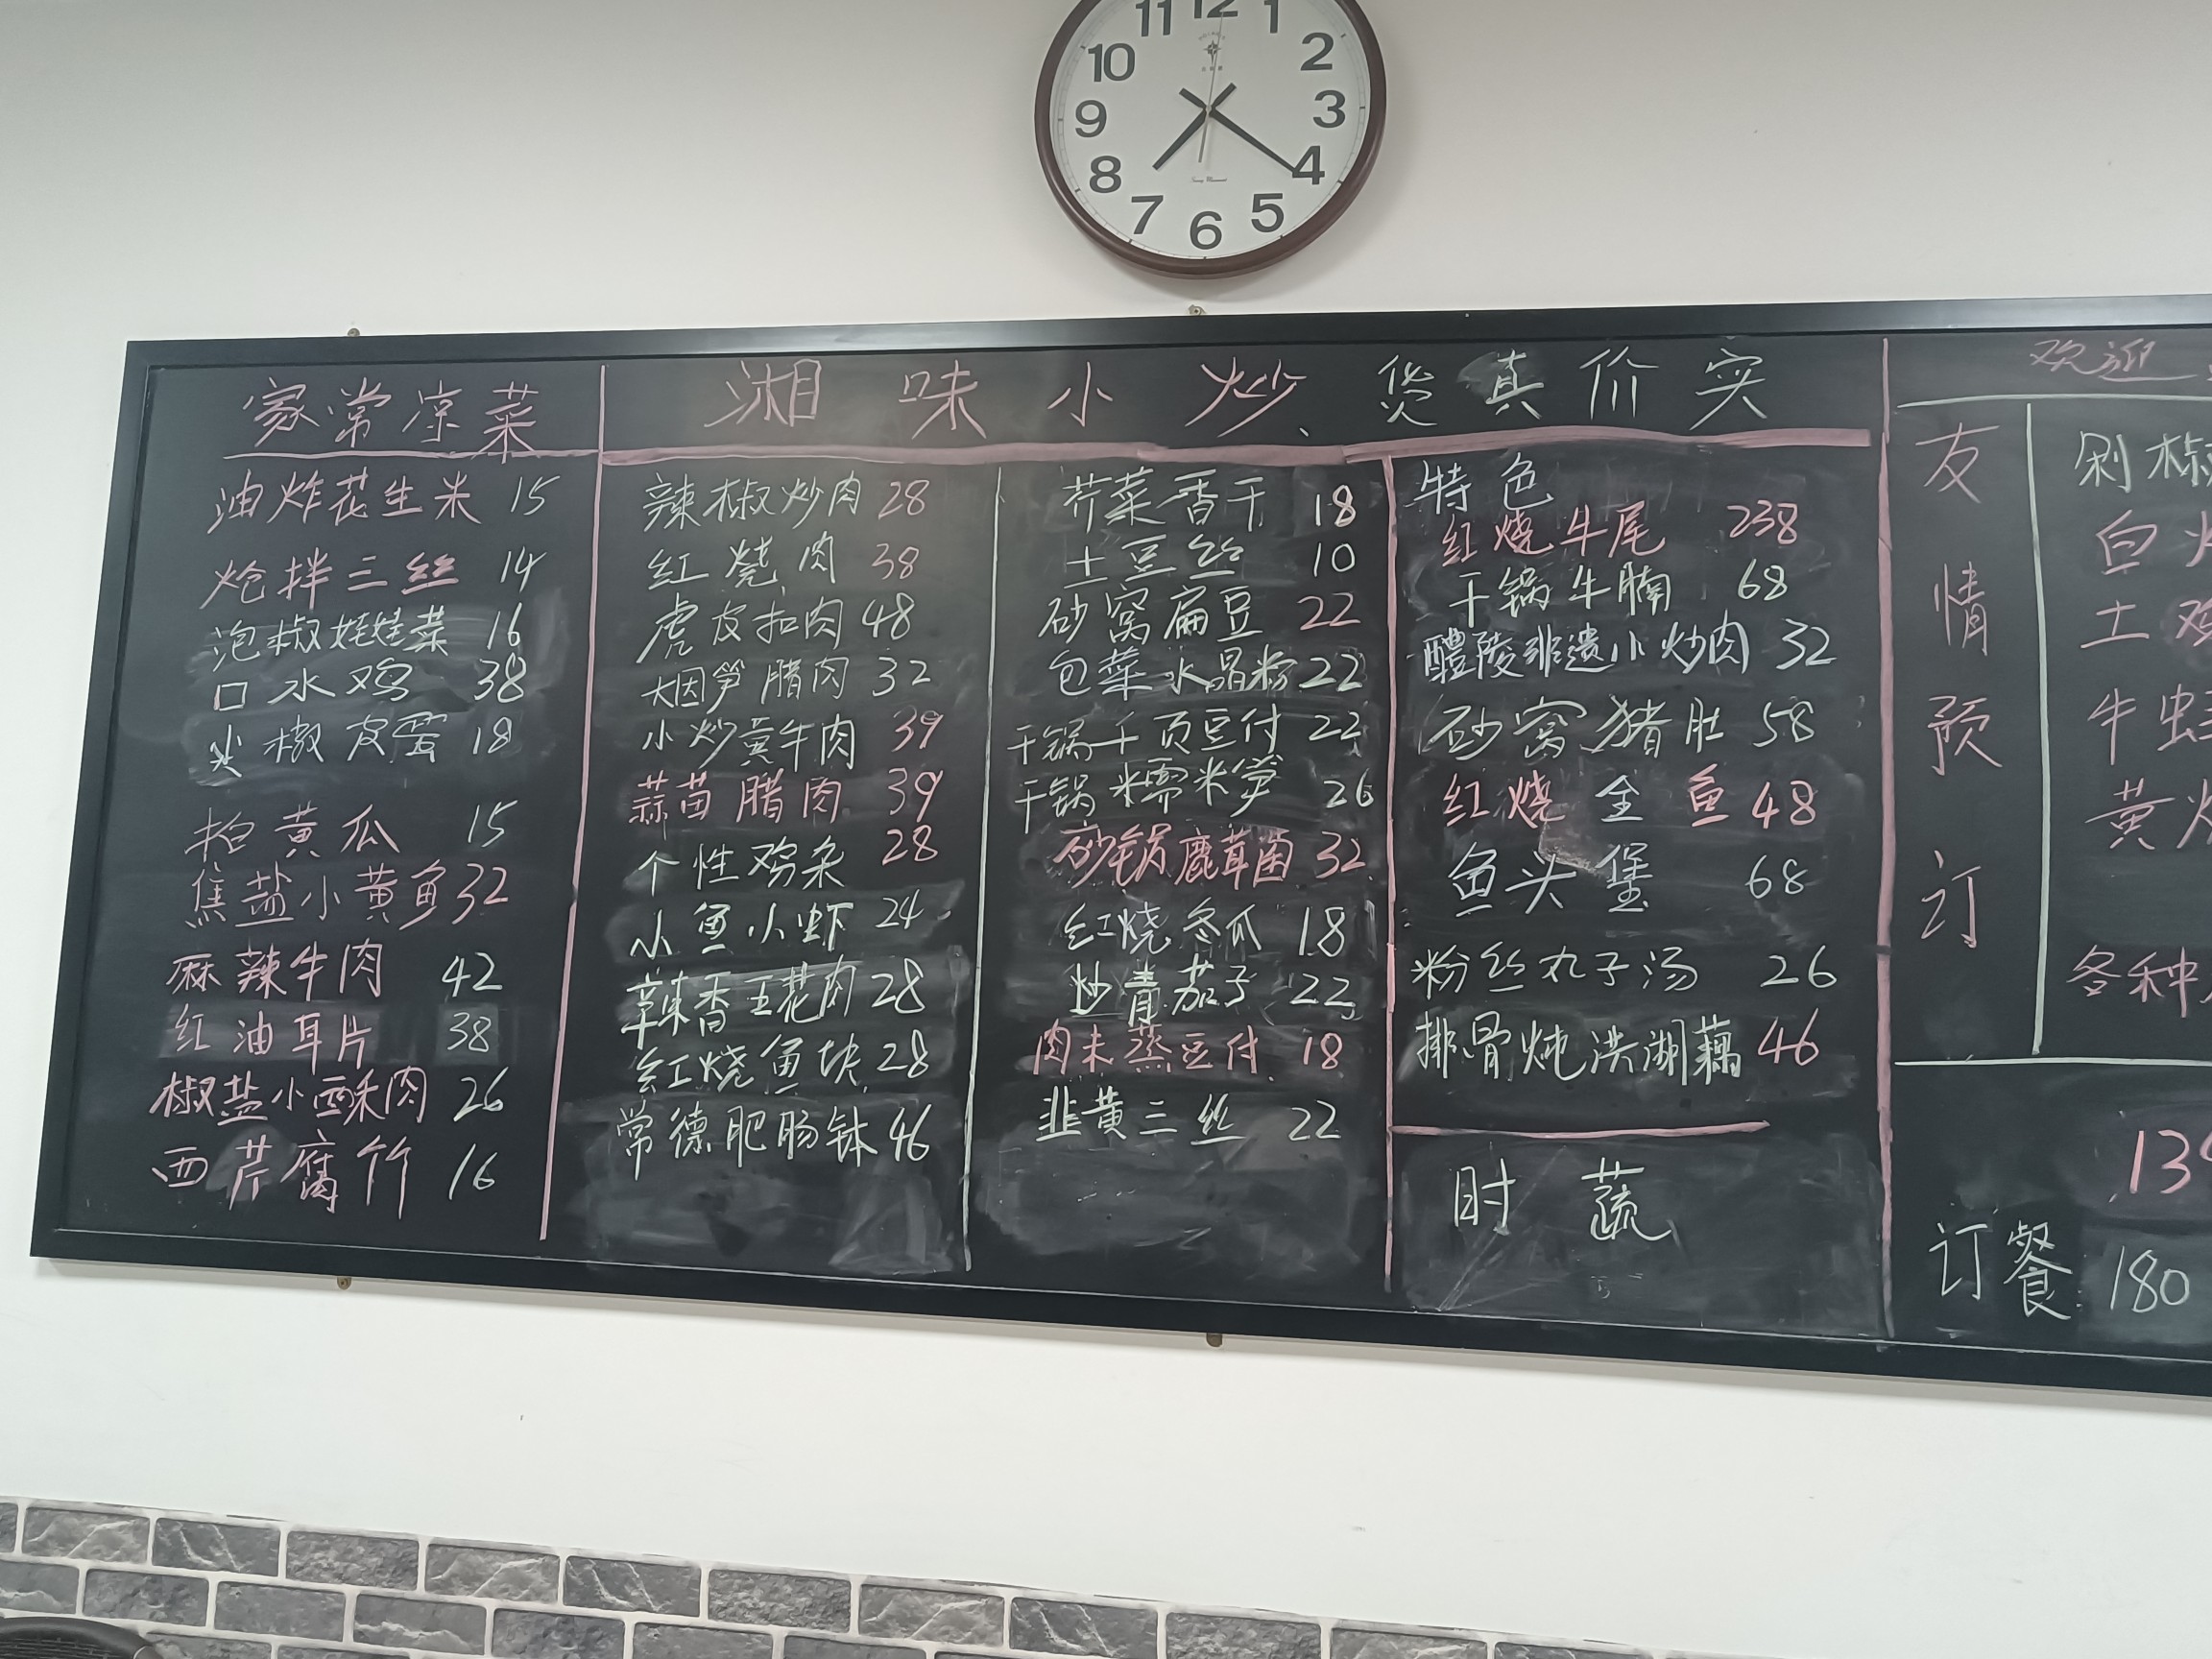 11 12 1
10 2
9 3
8 4
7 6 5
家常凉菜
油炸花生米 15
炝拌三丝 14
泡椒娃娃菜 16
口水鸡 38
尖椒皮蛋 18
拍黄瓜 15
焦盐小黄鱼 32
麻辣牛肉 42
红油耳片 38
椒盐小酥肉 26
西芹腐竹 16
湘味小炒、货真价实
辣椒炒肉 28
红烧肉 38
虎皮扣肉 48
烟笋腊肉 32
小炒黄牛肉 39
蒜苗腊肉 39
个性鸡杂 28
小鱼小虾 24
辣香五花肉 28
红烧鱼块 28
常德肥肠钵 46
芥菜香干 18
土豆丝 10
砂窝扁豆 22
包菜水晶粉 22
干锅千页豆付 22
干锅糯米笋 26
砂锅鹿茸菌 32
红烧冬瓜 18
炒青茄子 22
肉末蒸豆付 18
韭黄三丝 22
特色
红烧牛尾 238
干锅牛腩 68
醴陵非遗小炒肉 32
砂窝猪肚 58
红烧全鱼 48
鱼头堡 68
粉丝丸子汤 26
排骨炖洪湖藕 46
时蔬
欢迎
友情预订
剁椒
白
土鸡
牛蛙
黄
各种
13
订餐 180